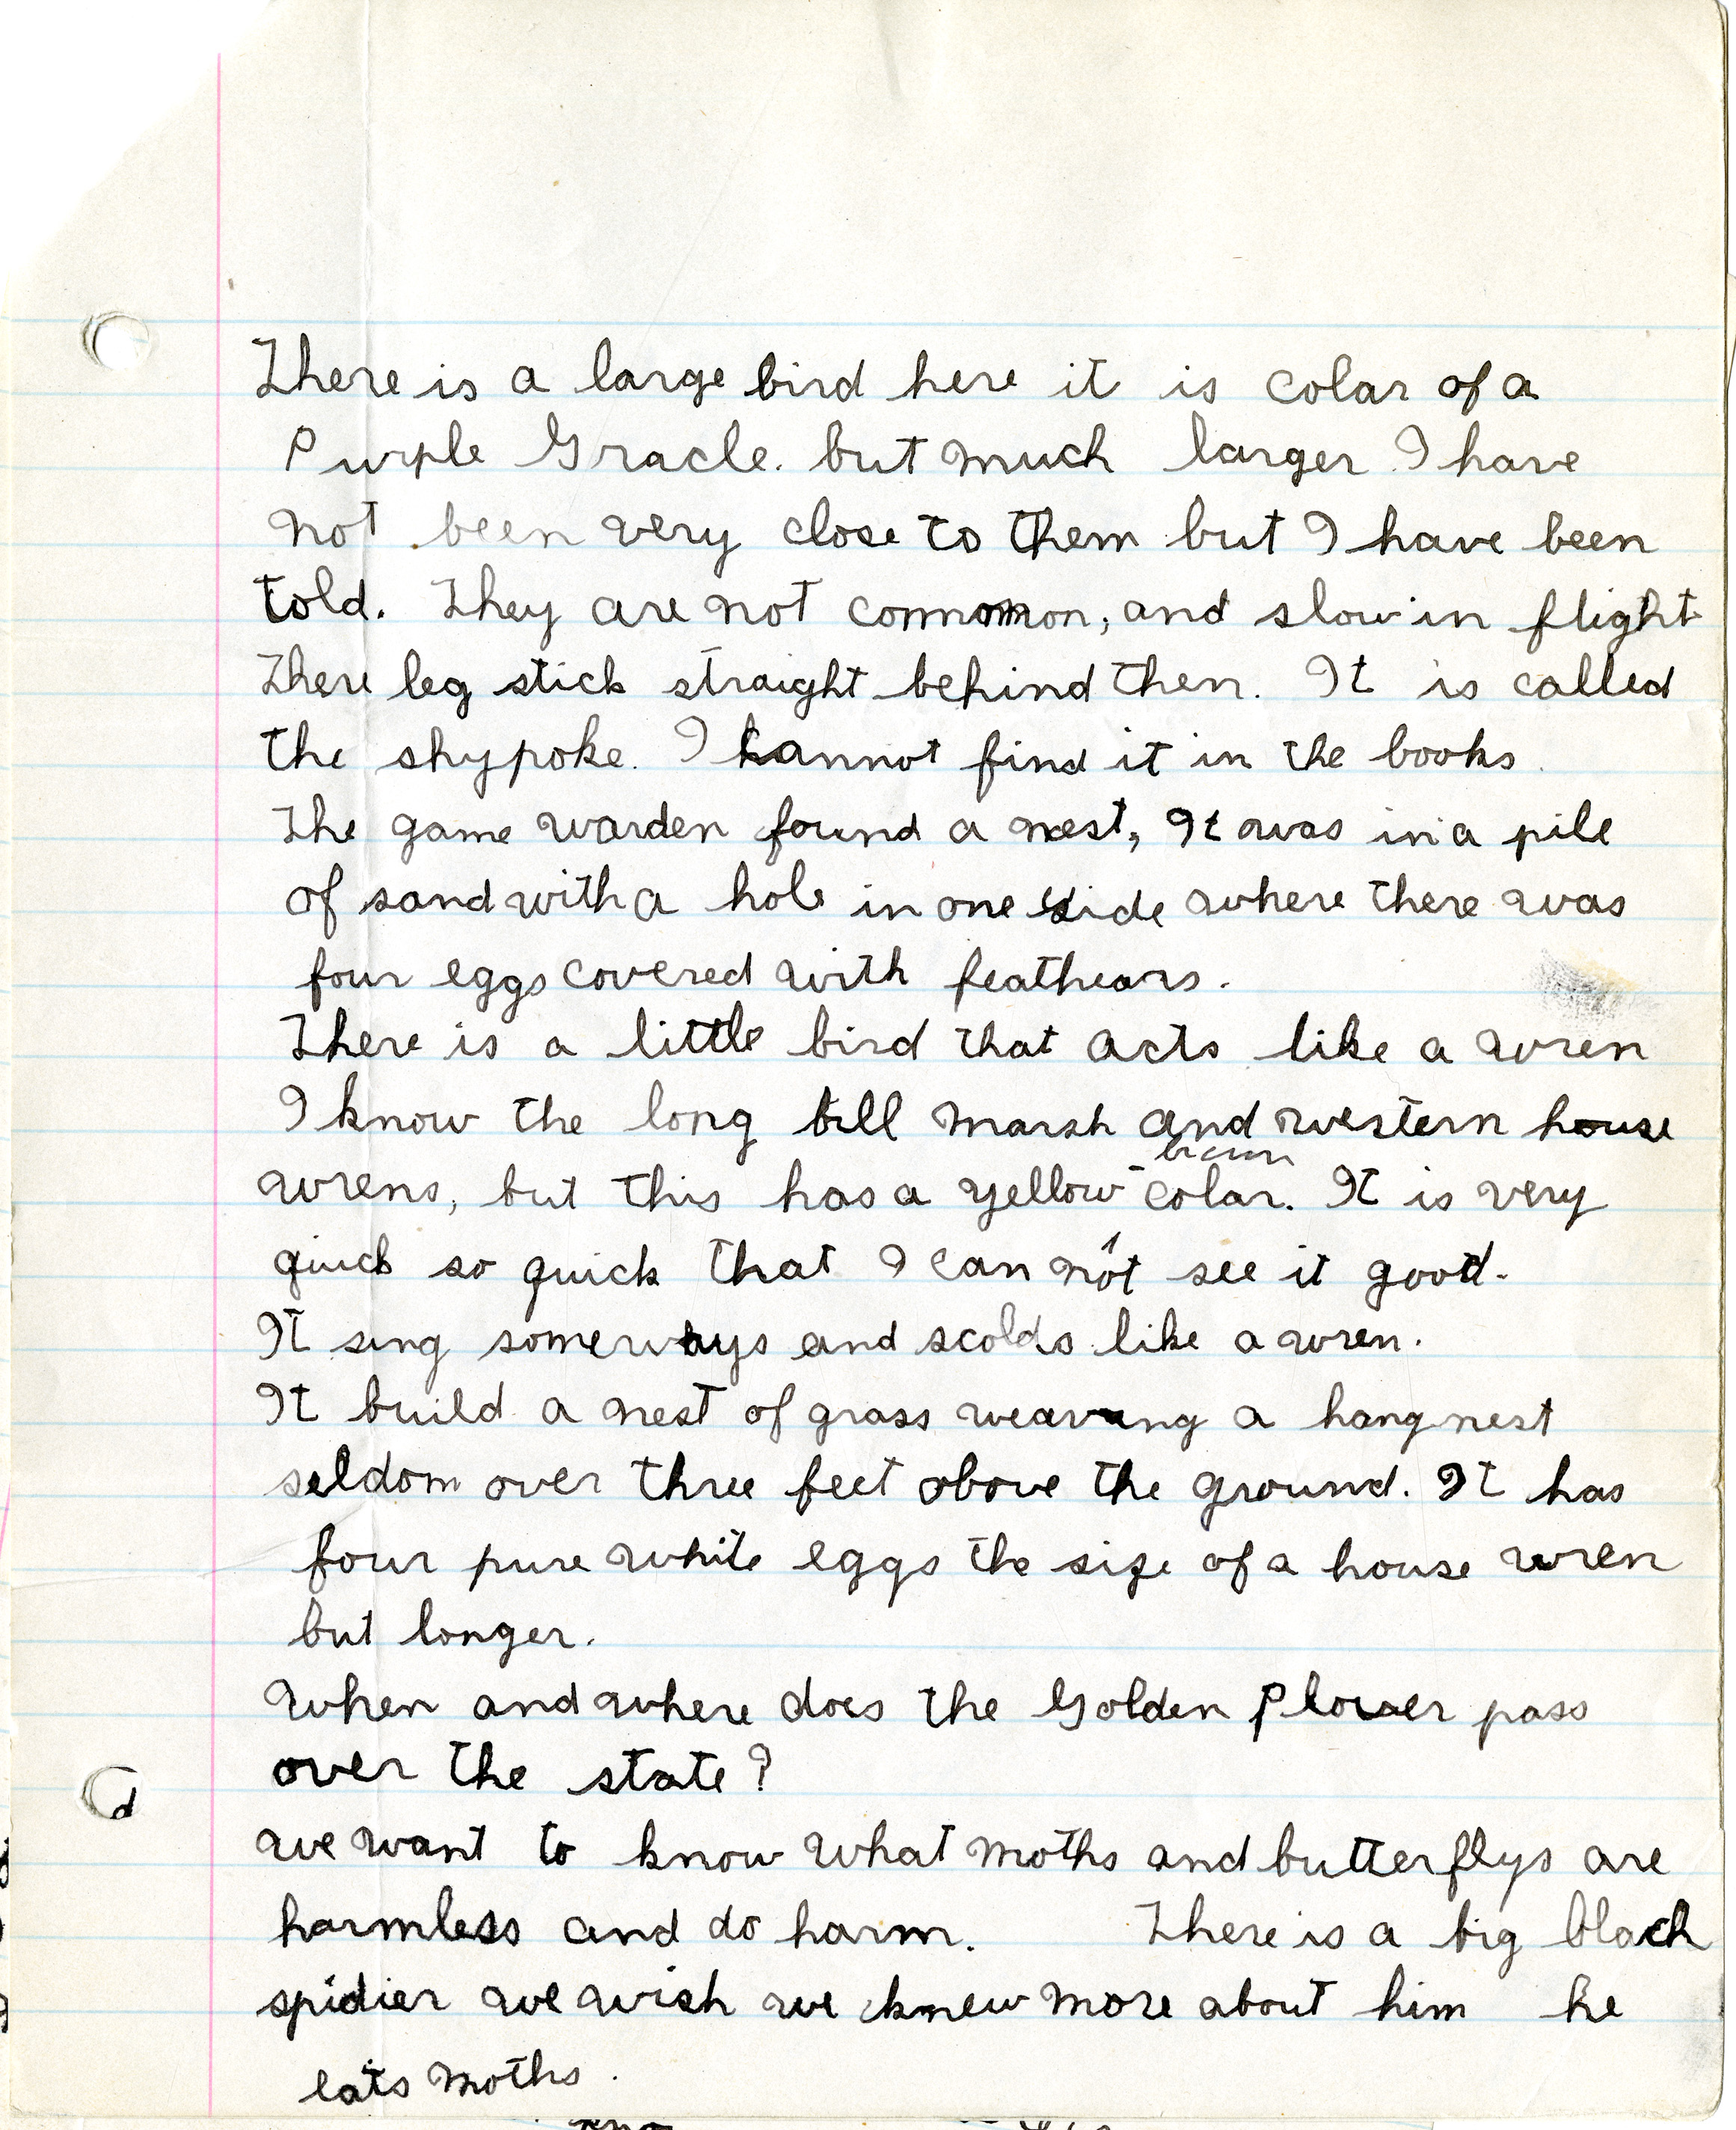 There is a large bird here it is colar of a
Purple Gracle. but much larger I have
not been very close to them but I have been
told. They are not common, and slow in flight
There leg stick straight behind then. It is called
the shypoke. I kannot find it in the books.
The game warden found a nest, It was in a pile
of sand with a hole in one side where there was
four eggs covered with feathears.
There is a little bird that acts like a wren
I know the long bill marsh and western house
wrens, but this has a yellow - brown colar. It is very
quick so quick that I can not see it good.
It sing someways and scolds like a wren.
It build a nest of grass weaving a hang nest
seldom over three feet above the ground. It has
four pure white eggs the size of a house wren
but longer.
When and where does the Golden Plover pass
over the state?
We want to know what moths and butterflys are
harmless and do harm. There is a big black
spidier we wish we knew more about him he
eats moths.